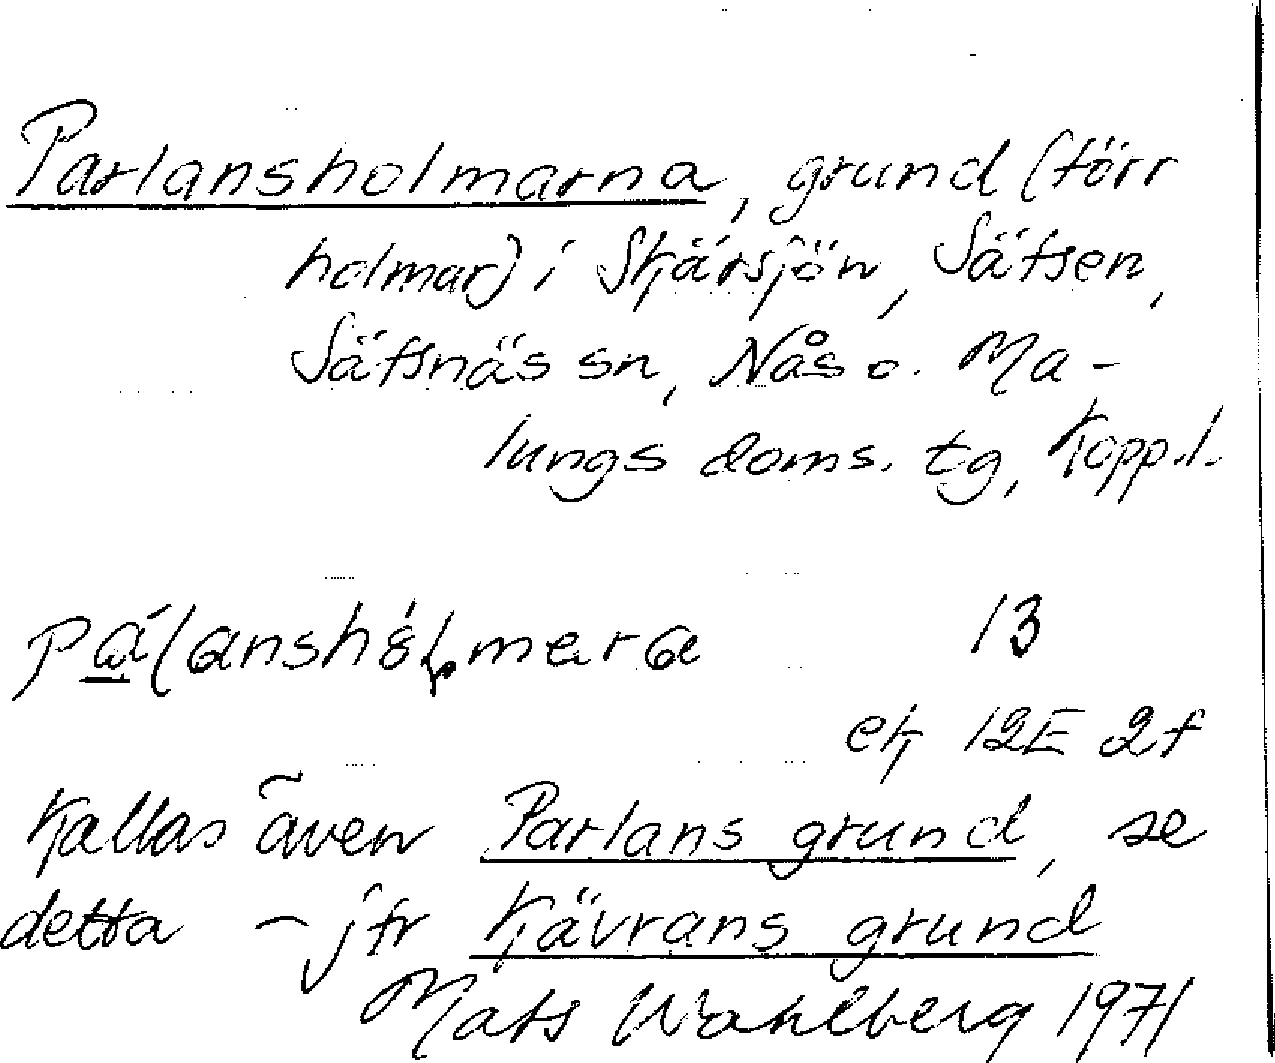 Parlansholmarna, grund (förr
holmar) i Skärsjön, Säfsen,
Säfsnäs sn, Nås o. Ma-
lungs doms. tg, Kopp.l.
13
ek 12E 2f
Kallas även Parlans grund, se
detta - jfr Kjävrans grund
Mats Wahlberg 1971